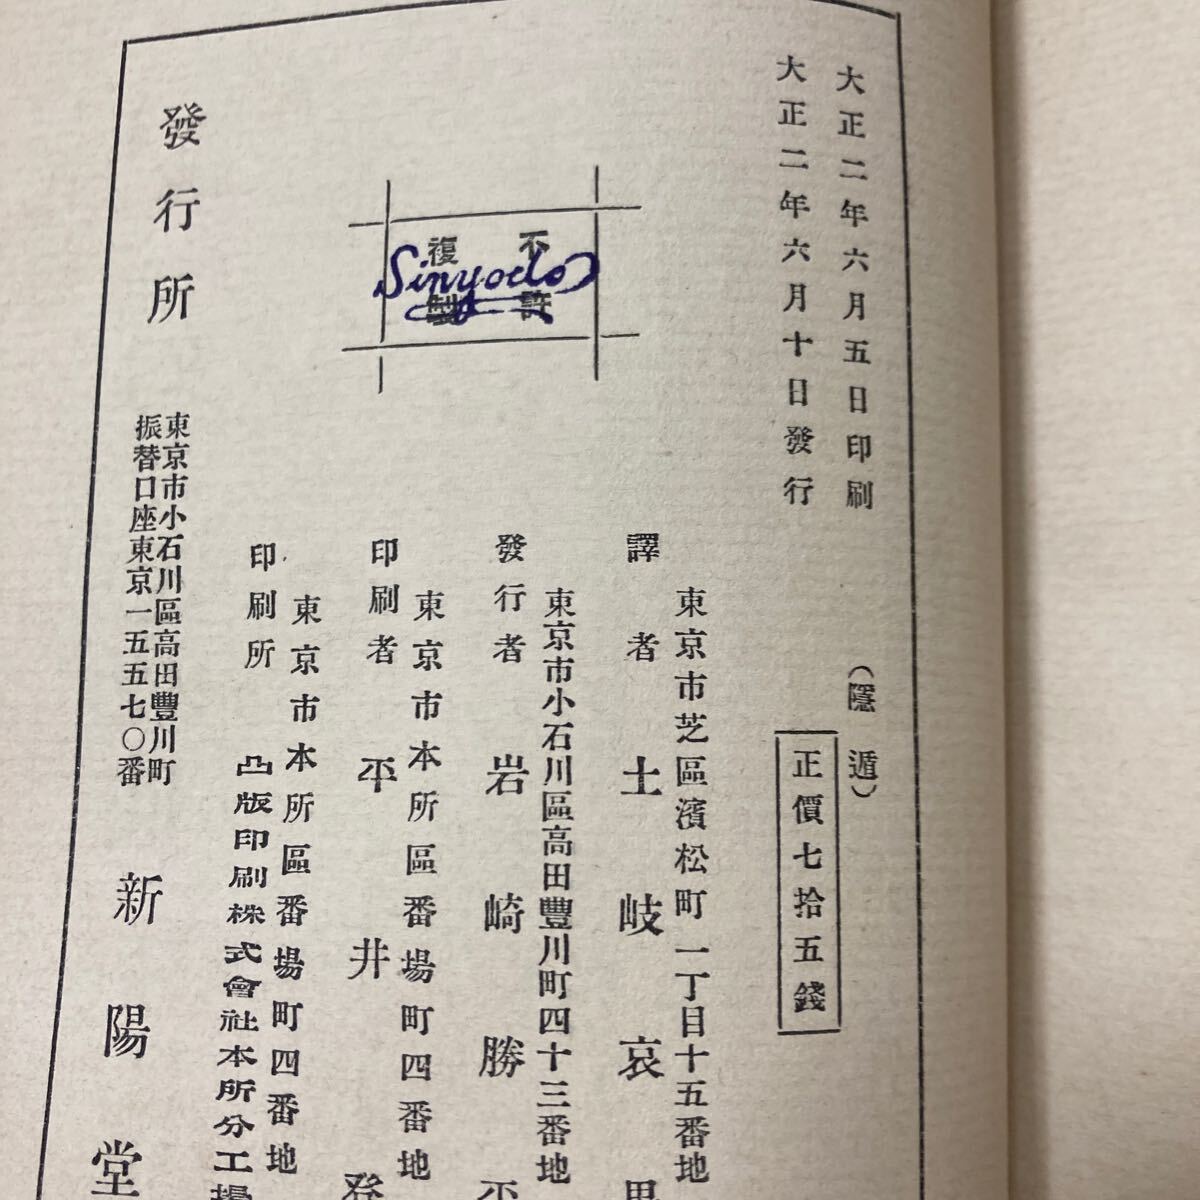 大正二年六月五日印刷
大正二年六月十日發行
(隱遁)
正價七拾五錢
東京市芝區濱松町一丁目十五番地
譯者 土岐哀果
東京市小石川區高田豐川町四十三番地
發行者 岩崎勝平
東京市本所區番場町四番地
印刷者 平井登
東京市本所區番場町四番地
印刷所 凸版印刷株式會社本所分工場
不許
複製
Sinyodo
發行所
東京市小石川區高田豐川町
振替口座東京一五五七〇番
新陽堂